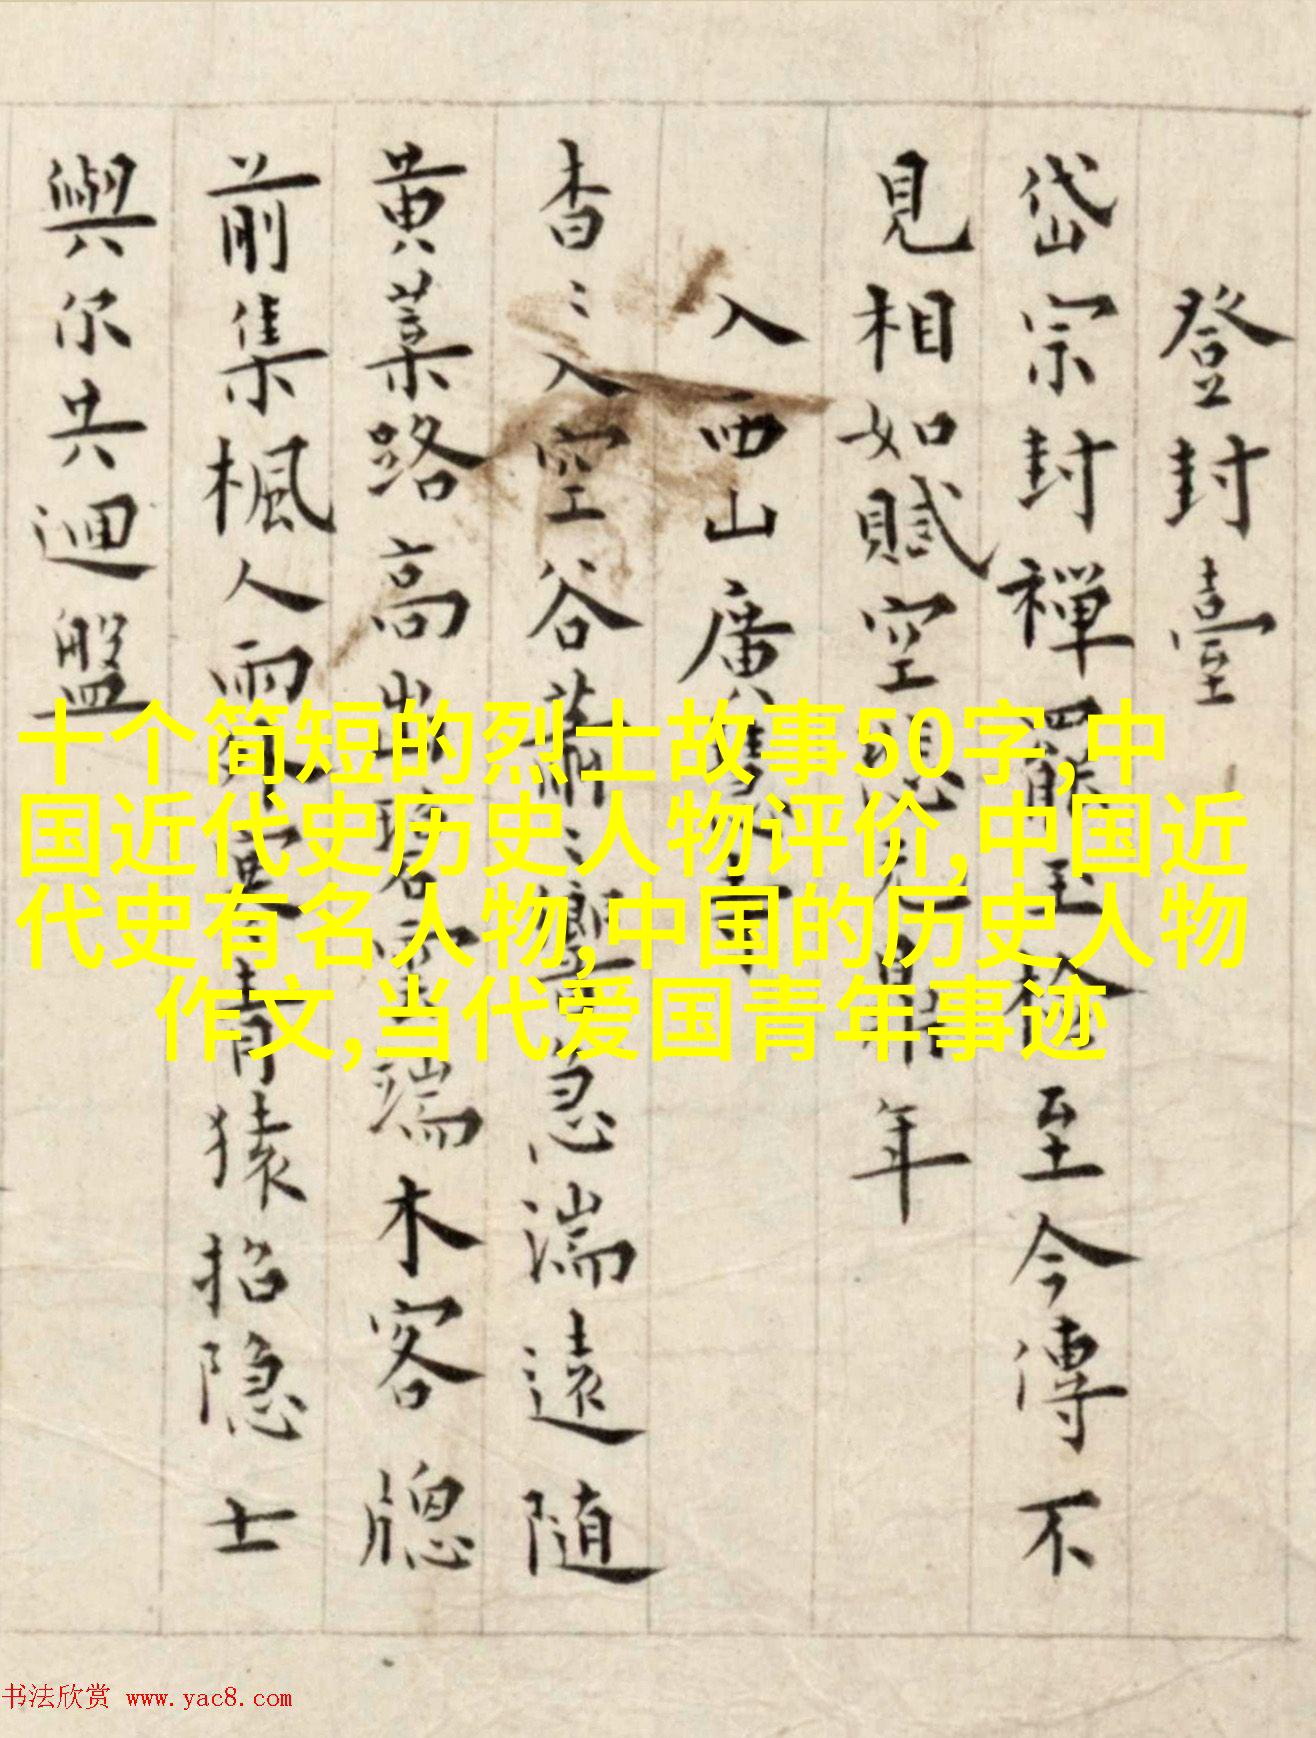 登封臺
岱宗封禪罷玉檢至今傳不
見相如賦空元鼎年
入西山廣寺
杳〻入空谷蕭〻響急湍遠随
黄葉路高出碧雲端木客牕
前集楓人雨外寒青猿招隐士
與尔共迴盤
十个简短的烈士故事50字,中
国近代史历史人物评价,中国近
代史有名人物,中国的历史人物
作文,当代爱国青年事迹
书法欣赏 www.yac8.com